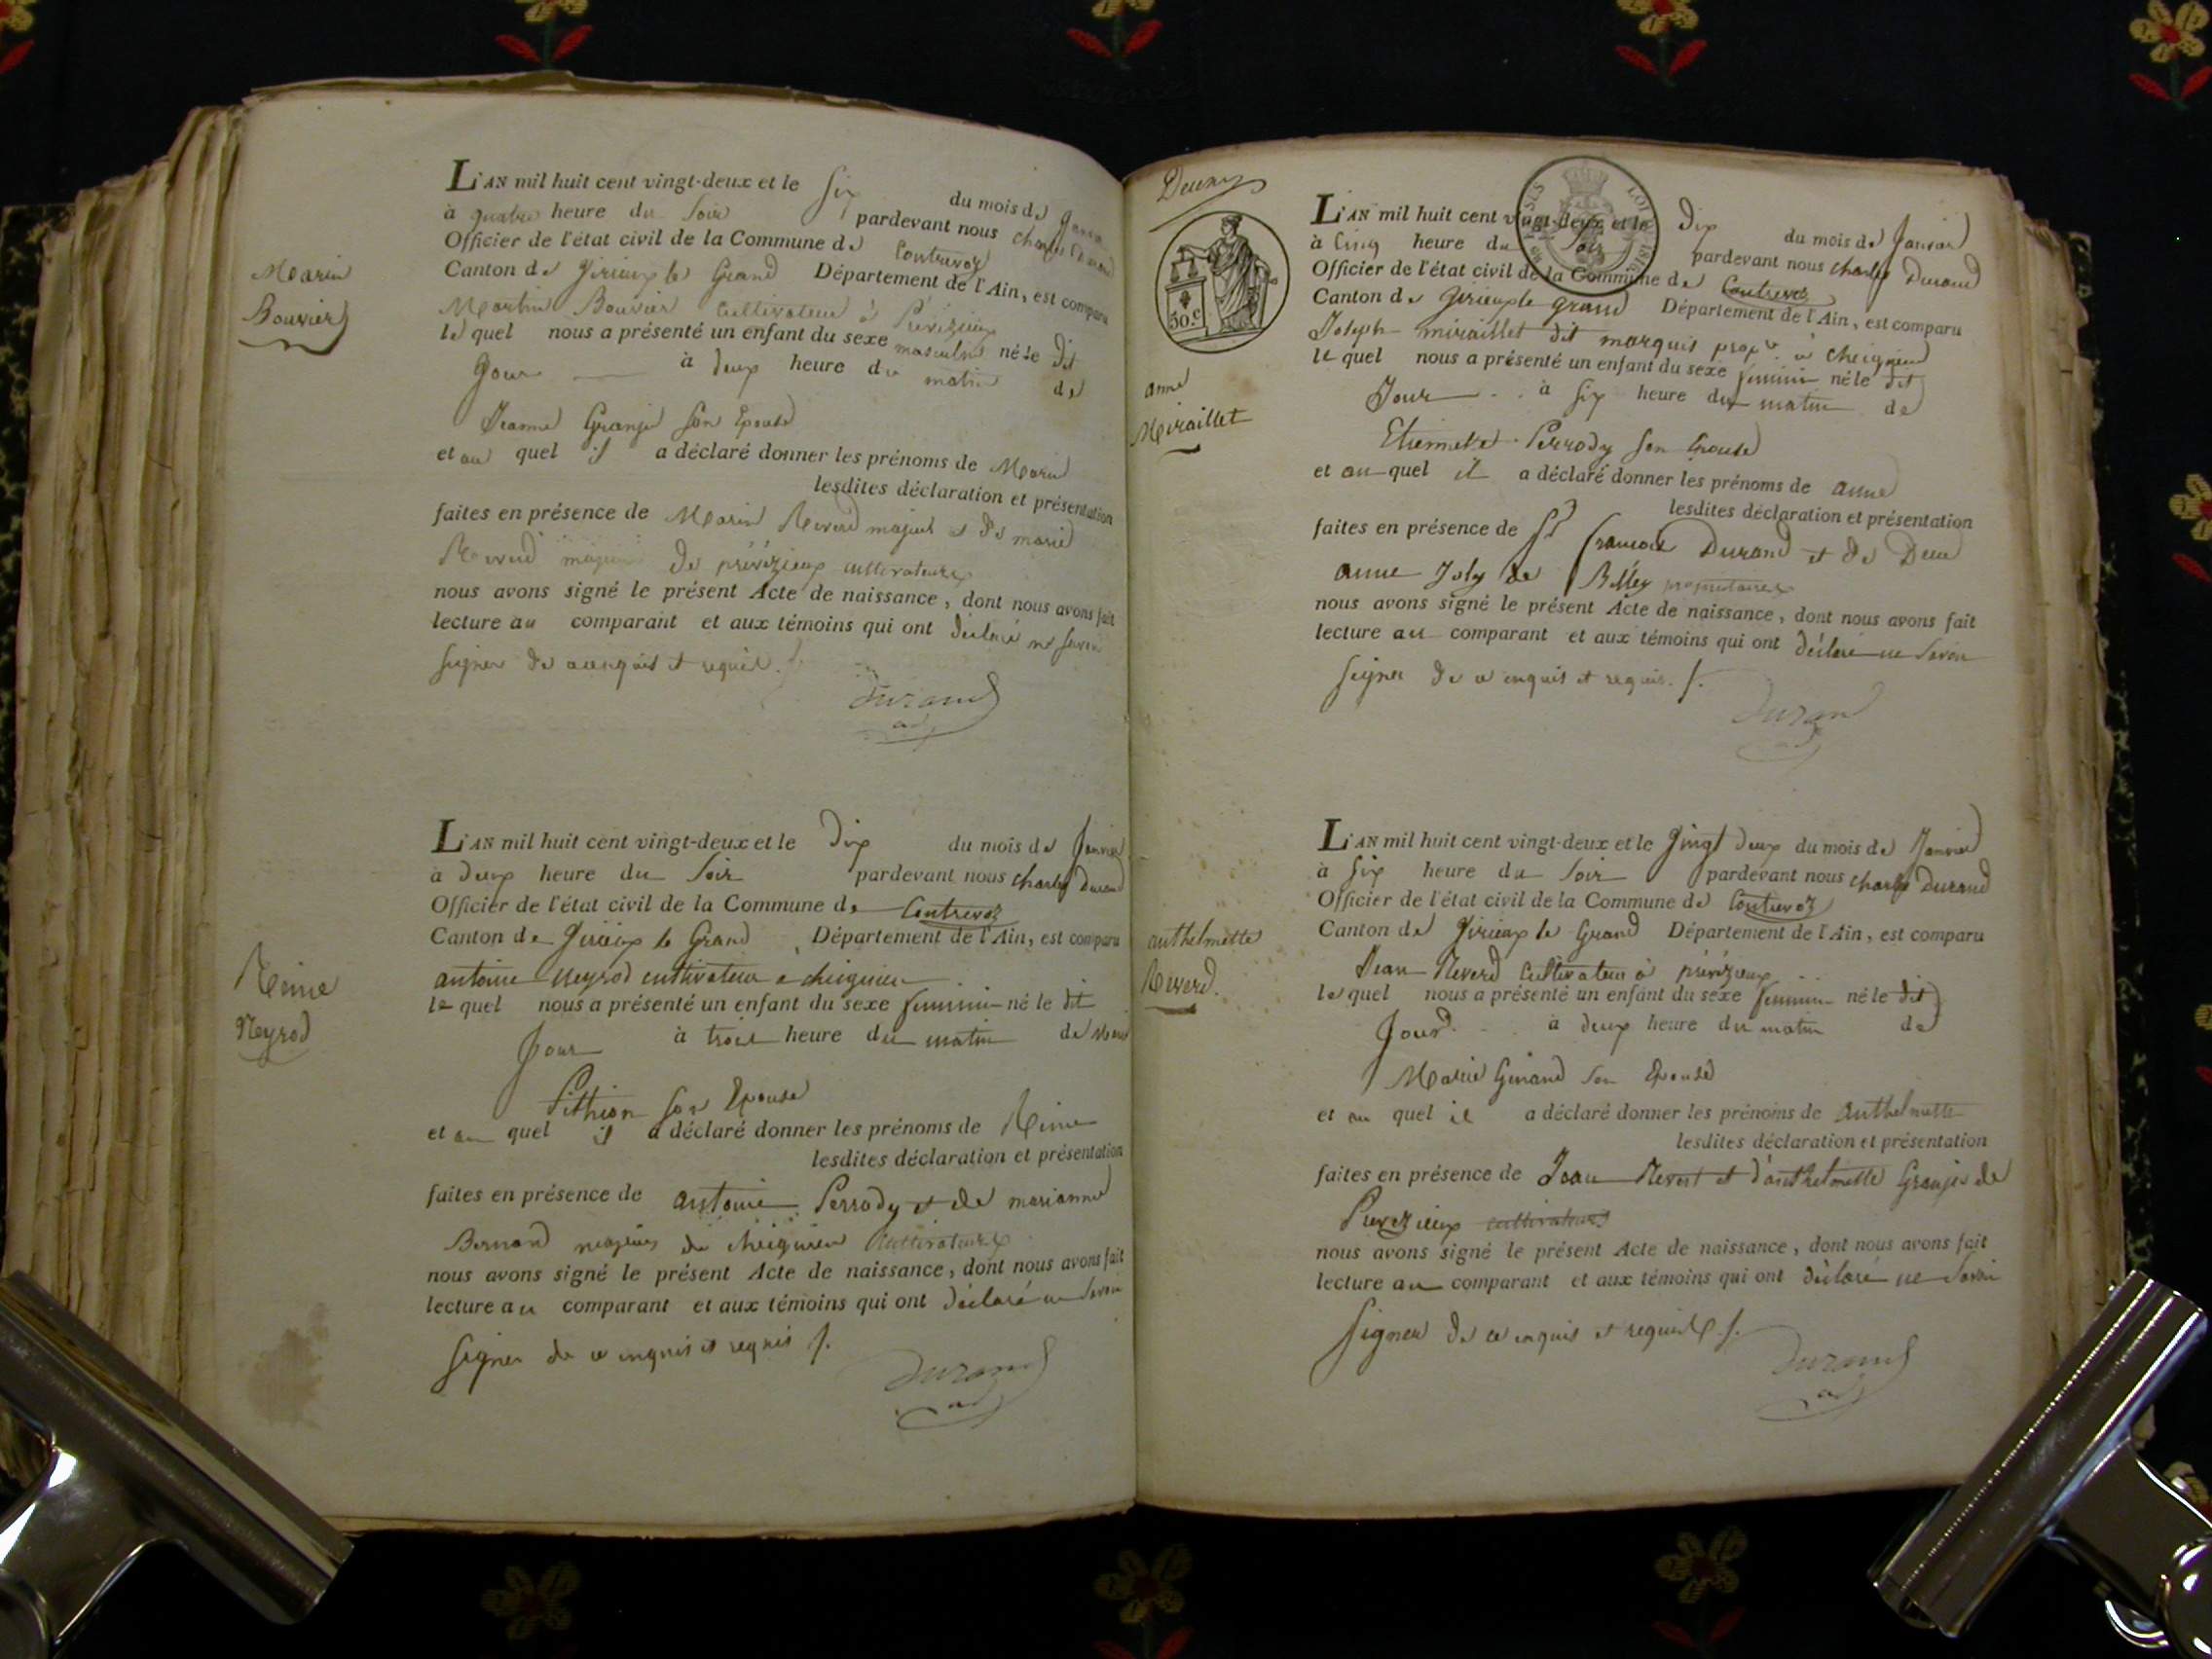 Marin
Bouvier
L'AN mil huit cent vingt-deux et le six du mois de Janvier
à quatre heure du soir pardevant nous charles Durand
Officier de l'état civil de la Commune de Contrevoz
Canton de Virieux le Grand Département de l'Ain, est comparu
Martin Bouvier cultivateur à Prévizieux
lequel nous a présenté un enfant du sexe masculin né le dit
Jour à deux heure du matin de
Jeanne Granje son Epouse
et au quel il a déclaré donner les prénoms de Marin
lesdites déclaration et présentation
faites en présence de Marin Reverd majeur et de marie
Reverd majeurs de prévézieux cultivateurs
nous avons signé le présent Acte de naissance, dont nous avons fait
lecture au comparant et aux témoins qui ont déclaré ne savoir
signer de ce enquis et requis ./.
Durand
Reine
Neyrod
L'AN mil huit cent vingt-deux et le dix du mois de Janvier
à deux heure du soir pardevant nous charles Durand
Officier de l'état civil de la Commune de Contrevoz
Canton de Virieux le Grand Département de l'Ain, est comparu
antoine Neyrod cultivateur a cheignieu
lequel nous a présenté un enfant du sexe feminin né le dit
Jour à trois heure du matin de
Pithion son Epouse
et au quel il a déclaré donner les prénoms de Reine
lesdites déclaration et présentation
faites en présence de antoine Perrody et de marianne
Bernard majeurs de cheignieu Cultivateurs
nous avons signé le présent Acte de naissance, dont nous avons fait
lecture au comparant et aux témoins qui ont déclaré ne savoir
signer de ce enquis et requis ./.
Durand
Deux
50.c
anne
Miraillet
L'AN mil huit cent vingt-deux et le dix du mois de Janvier
à Cinq heure du soir pardevant nous charles Durand
Officier de l'état civil de la Commune de Contrevoz
Canton de Virieux le grand Département de l'Ain, est comparu
Joseph miraillet dit marquis prop.re à cheignieu
lequel nous a présenté un enfant du sexe feminin né le dit
Jour à six heure du matin de
Etiennette Perrody son Epouse
et au quel il a déclaré donner les prénoms de anne
lesdites déclaration et présentation
faites en présence de Sr francois Durand et de Dlle
anne Joly de Belley propriétaires
nous avons signé le présent Acte de naissance, dont nous avons fait
lecture au comparant et aux témoins qui ont déclaré ne savoir
signer de ce enquis et requis ./.
Durand
anthelmette
Reverd.
L'AN mil huit cent vingt-deux et le Vingt deux du mois de Janvier
à six heure du soir pardevant nous charles Durand
Officier de l'état civil de la Commune de Contrevoz
Canton de Virieux le Grand Département de l'Ain, est comparu
Jean Reverd Cultivateur à prévizieux
lequel nous a présenté un enfant du sexe feminin né le dit
Jour à deux heure du matin de
Marie Ginand son Epouse
et au quel il a déclaré donner les prénoms de anthelmette
lesdites déclaration et présentation
faites en présence de Jean Reverd et d'anthelmette Granje de
Prevezieux cultivateurs
nous avons signé le présent Acte de naissance, dont nous avons fait
lecture au comparant et aux témoins qui ont déclaré ne savoir
signer de ce enquis et requis ./.
Durand